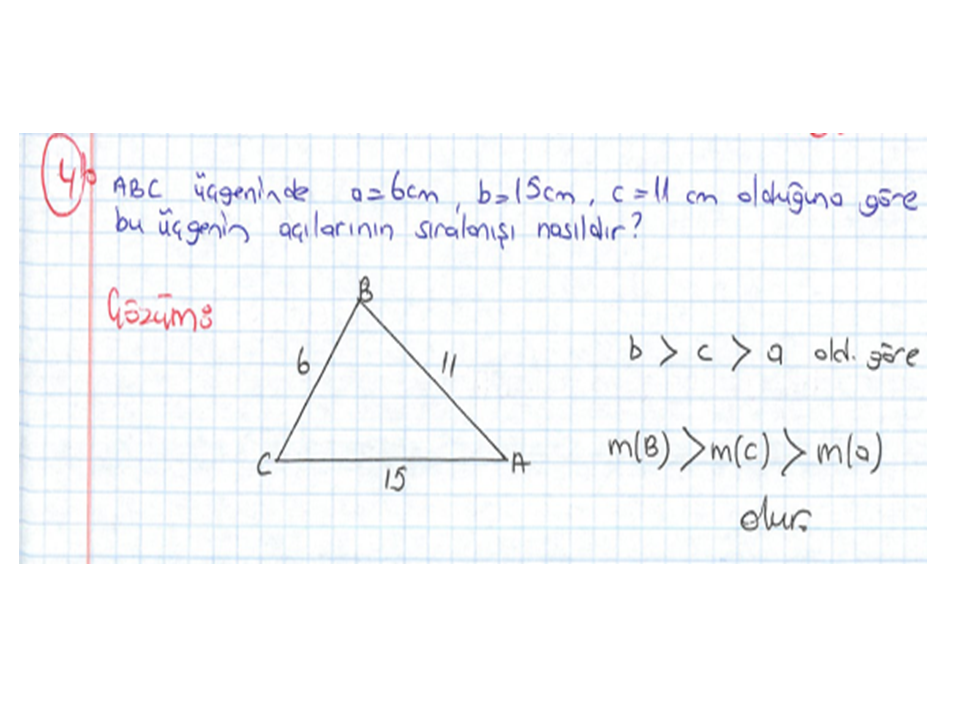 4
ABC üçgeninde a=6cm, b=15cm, c=11 cm olduğuna göre
bu üçgenin açılarının sıralanışı nasıldır?
Çözüm:
B
6
11
b > c > a old. göre
C
15
A
m(B) > m(C) > m(a)
olur.